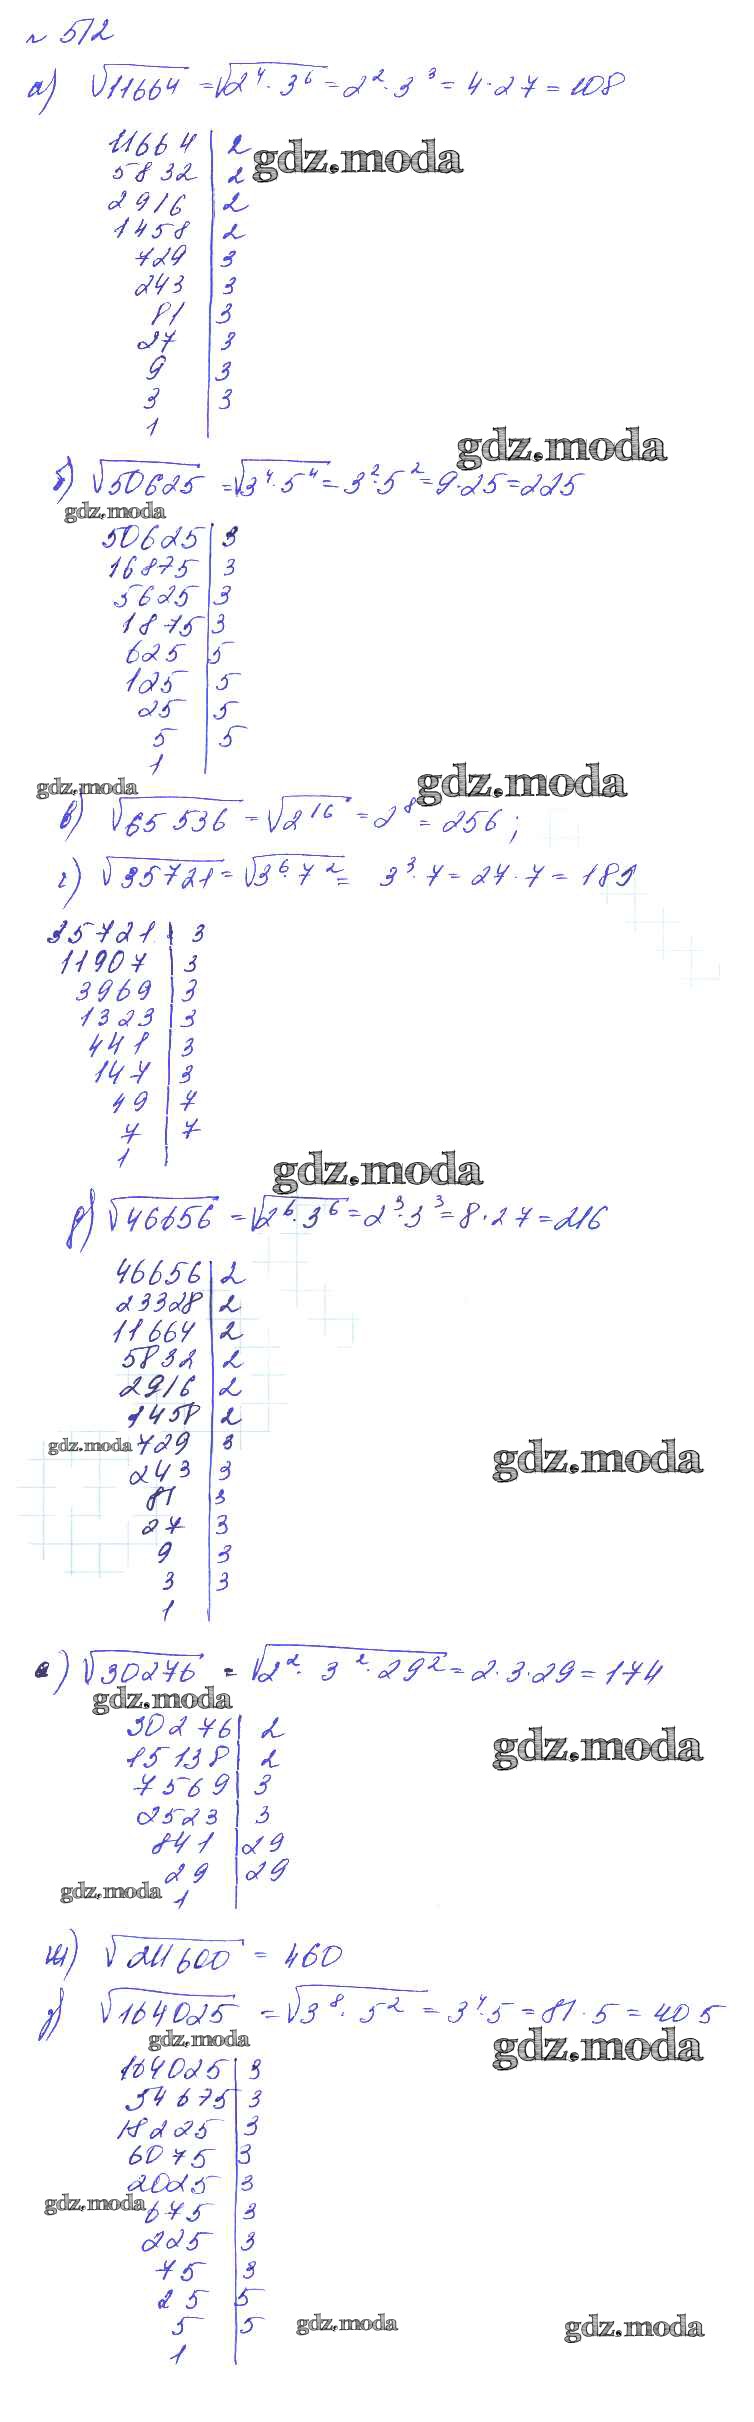 № 512
а) √11664 = √2⁴·3⁶ = 2²·3³ = 4·27 = 108
11664 | 2
gdz.moda
5832 | 2
2916 | 2
1458 | 2
729 | 3
243 | 3
81 | 3
27 | 3
9 | 3
3 | 3
1 |
gdz.moda
б) √50625 = √3⁴·5⁴ = 3²·5² = 9·25 = 225
gdz.moda
50625 | 3
16875 | 3
5625 | 3
1875 | 3
625 | 5
125 | 5
25 | 5
5 | 5
1 |
gdz.moda
gdz.moda
в) √65 536 = √2¹⁶ = 2⁸ = 256;
г) √35721 = √3⁶·7² = 3³·7 = 27·7 = 189
35721 | 3
11907 | 3
3969 | 3
1323 | 3
441 | 3
147 | 3
49 | 7
7 | 7
1 |
gdz.moda
д) √46656 = √2⁶·3⁶ = 2³·3³ = 8·27 = 216
46656 | 2
23328 | 2
11664 | 2
5832 | 2
2916 | 2
1458 | 2
gdz.moda 729 | 3
gdz.moda
243 | 3
81 | 3
27 | 3
9 | 3
3 | 3
1 |
е) √30276 = √2²·3²·29² = 2·3·29 = 174
gdz.moda
30276 | 2
gdz.moda
15138 | 2
7569 | 3
2523 | 3
841 | 29
29 | 29
gdz.moda
1 |
ж) √211600 = 460
з) √164025 = √3⁸·5² = 3⁴·5 = 81·5 = 405
gdz.moda
gdz.moda
164025 | 3
54675 | 3
18225 | 3
6075 | 3
2025 | 3
gdz.moda 675 | 3
225 | 3
75 | 3
25 | 5
5 | 5
gdz.moda
gdz.moda
1 |